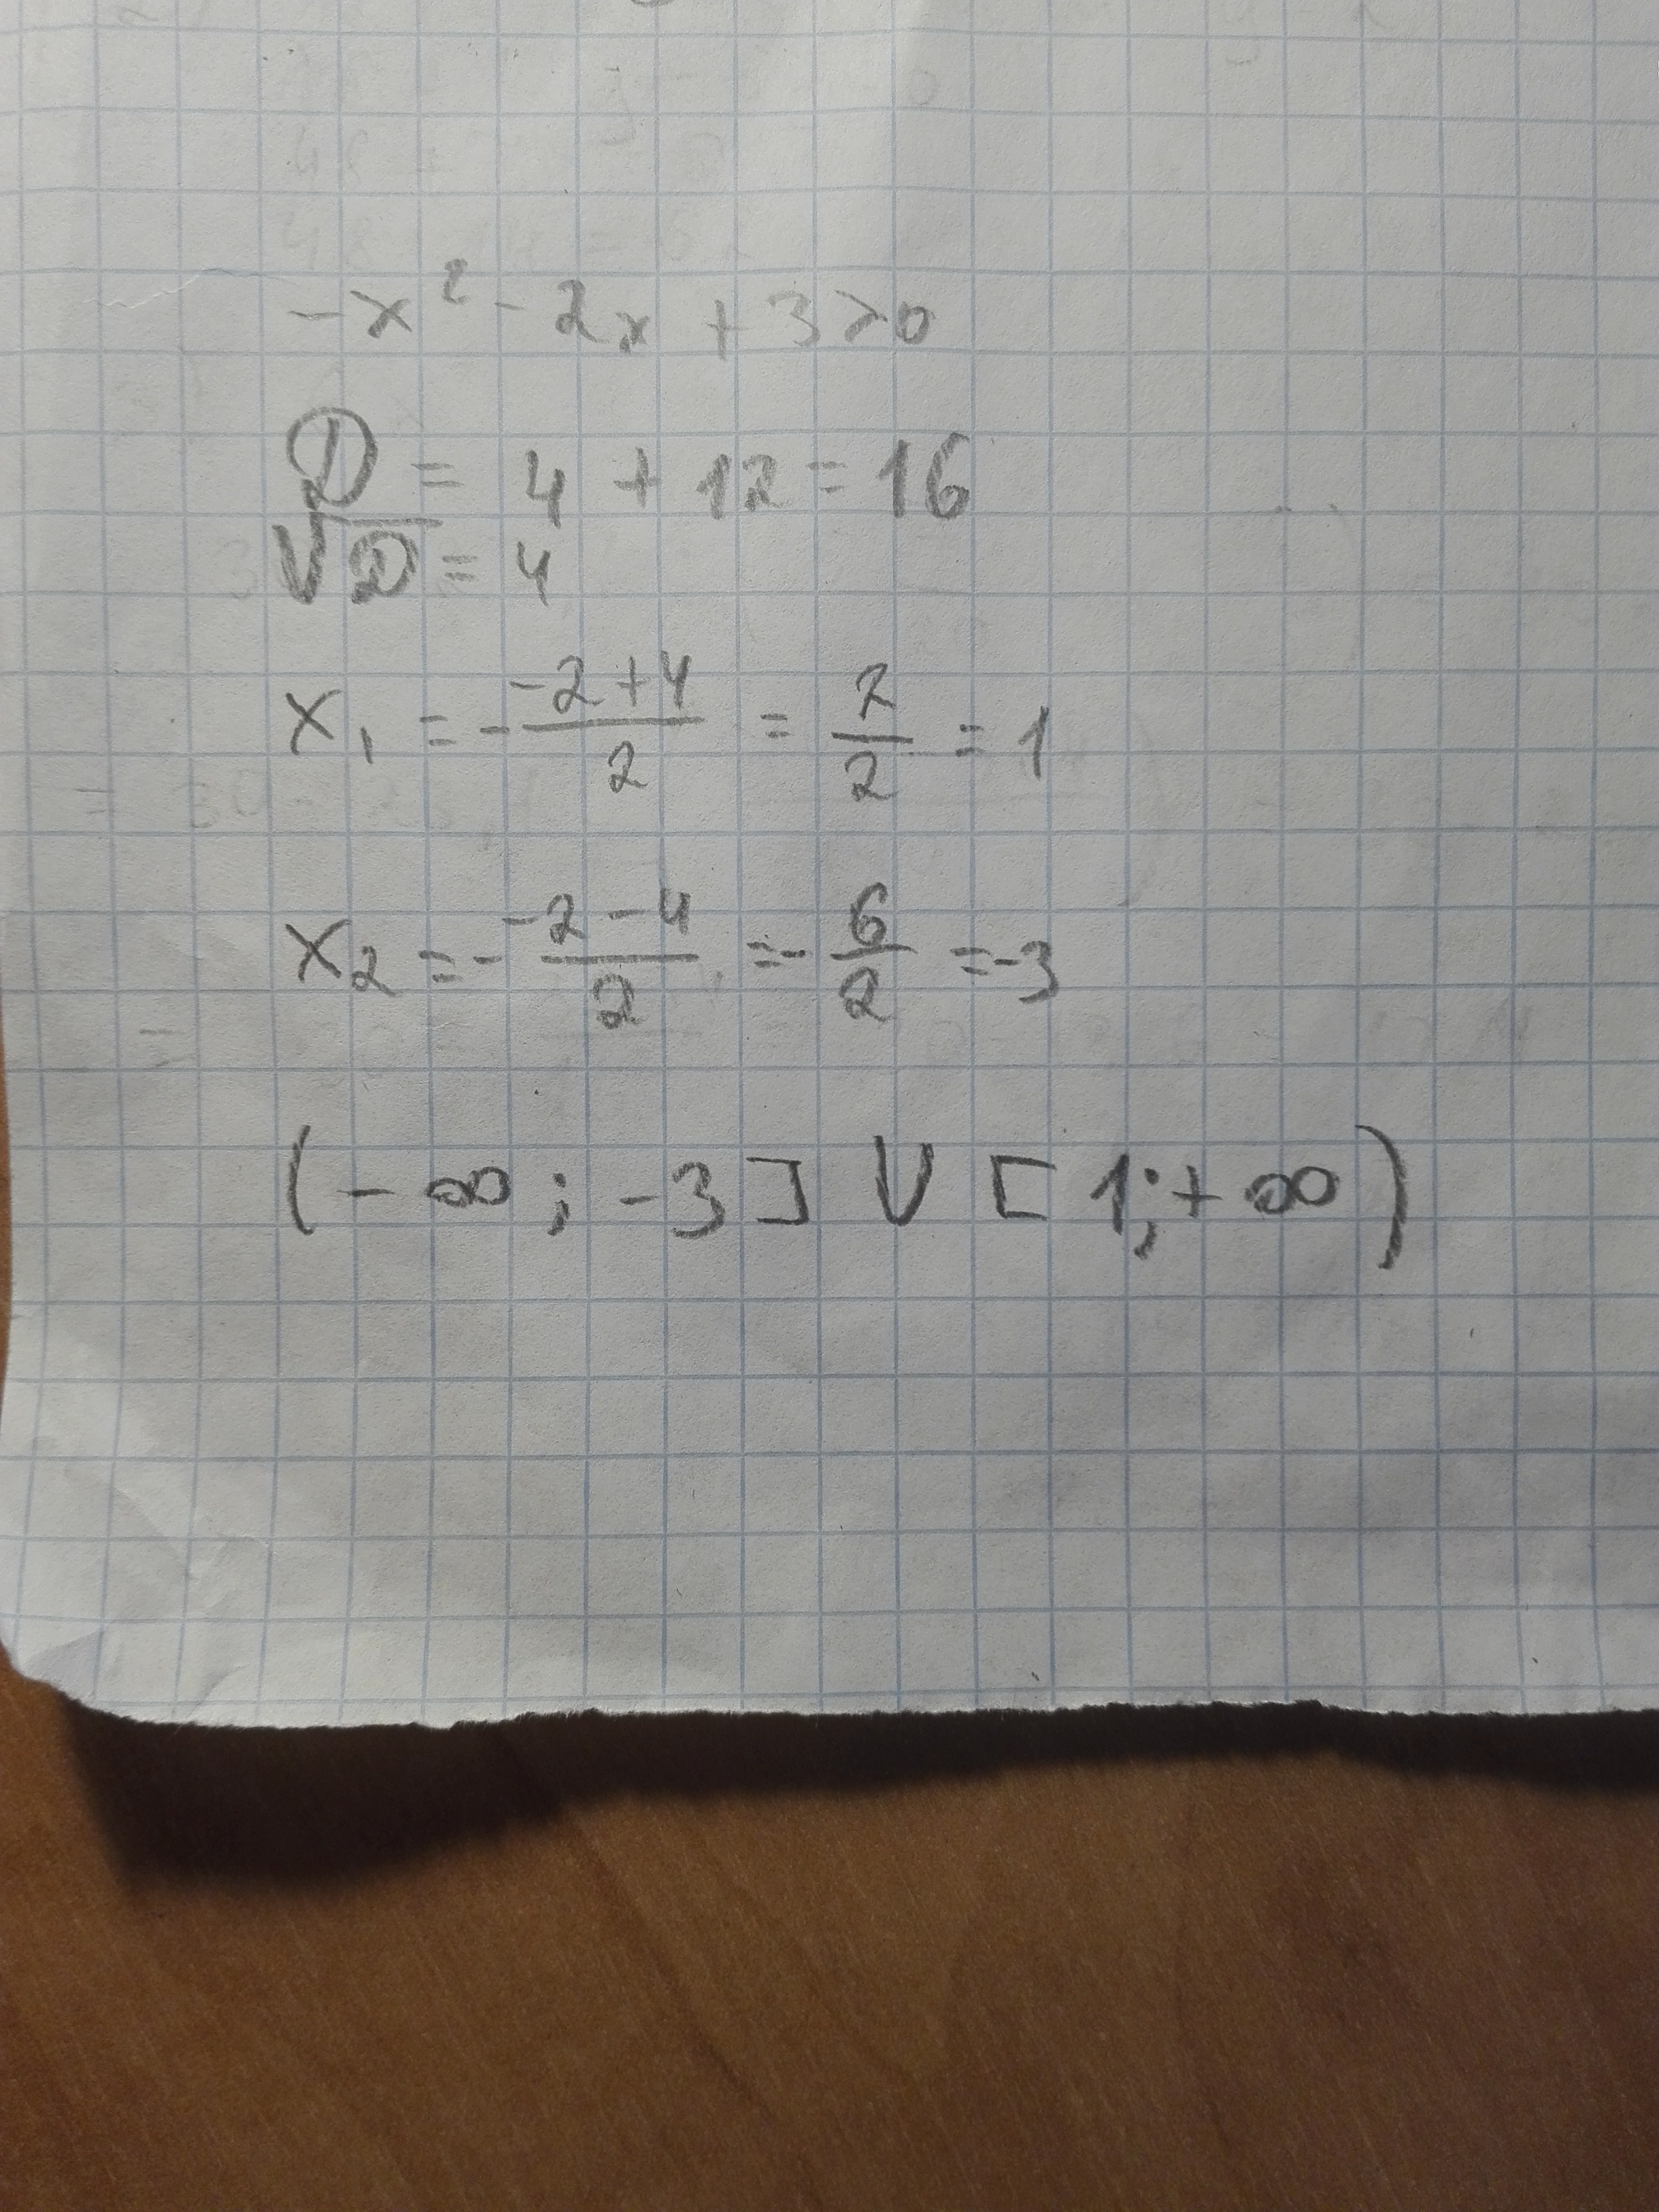 -x² - 2x + 3 > 0
D = 4 + 12 = 16
√D = 4
x₁ = - (-2+4)/2 = 2/2 = 1
x₂ = - (-2-4)/2 = - 6/2 = -3
(-∞; -3] ∪ [1; +∞)